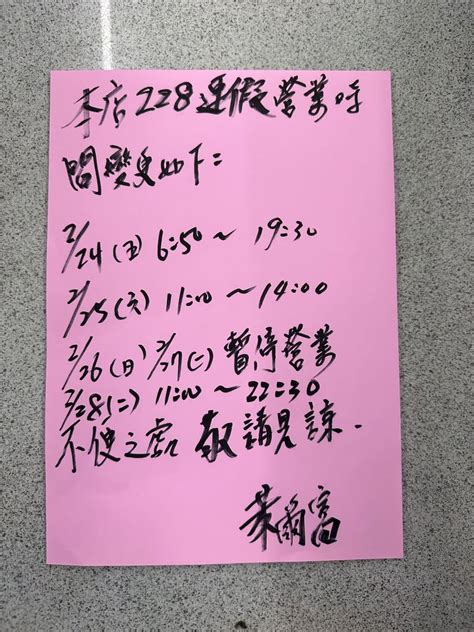 本店228連假營業時
間變更如下：
2/24(五) 6:50～19:30
2/25(六) 11:00～14:00
2/26(日) 2/27(一) 暫停營業
2/28(二) 11:00～22:30
不便之處 敬請見諒.
萊爾富